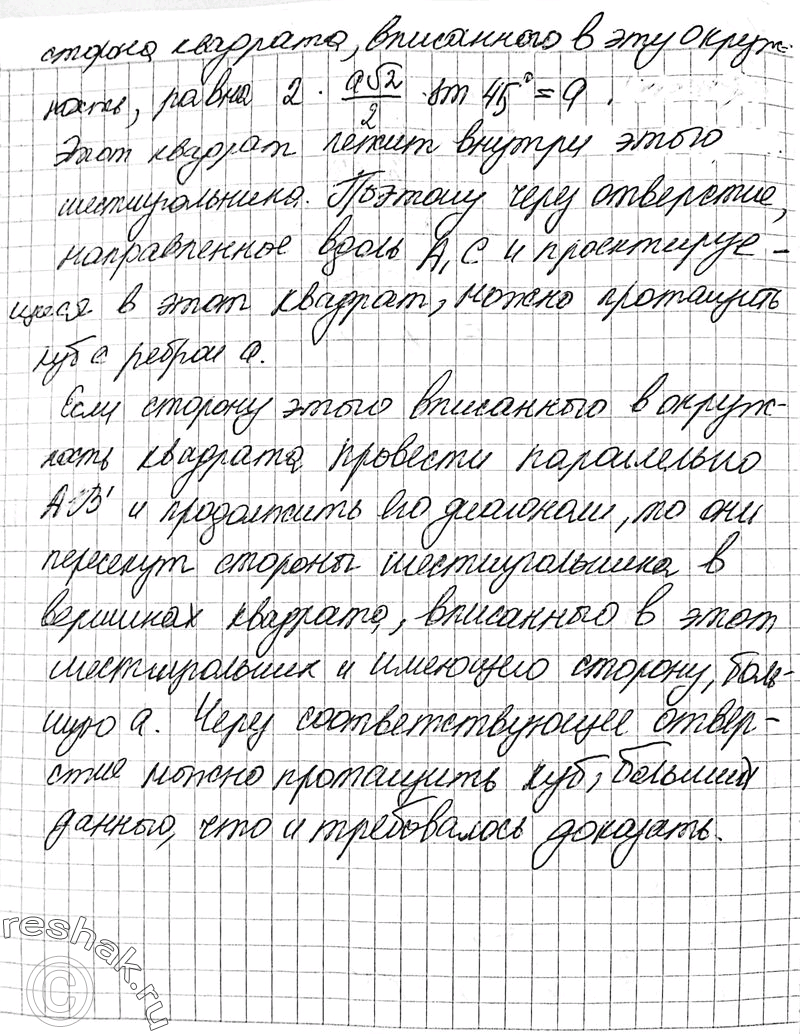 сторона квадрата, вписанного в эту окруж-
ность, равна 2 · a√2/2 · sin 45° = a.
Этот квадрат лежит внутри этого
шестиугольника. Поэтому через отверстие,
направленное вдоль A₁C и проектирую-
щееся в этот квадрат, можно протащить
куб с ребром a.
Если сторону этого вписанного в окруж-
ность квадрата провести параллельно
A'B' и продолжить его диагонали, то они
пересекут стороны шестиугольника в
вершинах квадрата, вписанного в этот
шестиугольник и имеющего сторону, боль-
шую a. Через соответствующее отвер-
стие можно протащить куб, больший
данного, что и требовалось доказать.
reshak.ru
©